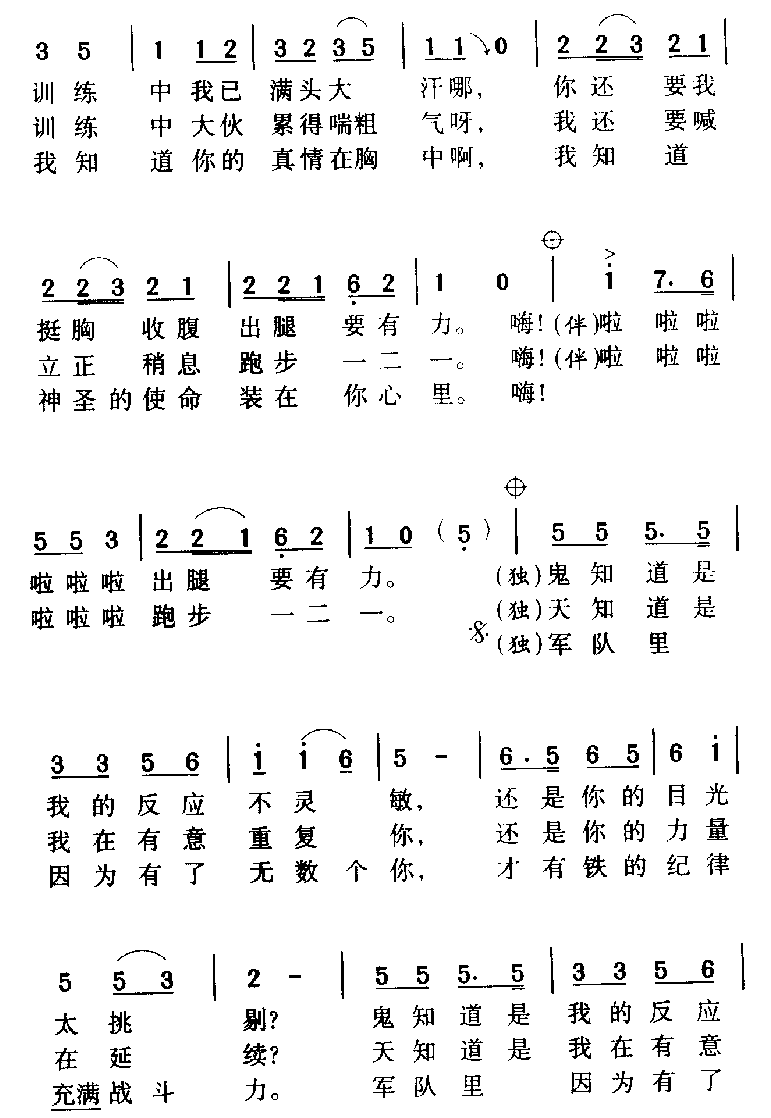 3 5 | 1 12 | 32 35 | 11 0 | 2 23 21 |
训练 中我已 满头大 汗哪， 你还 要我
训练 中大伙 累得喘粗 气呀， 我还 要喊
我知 道你的 真情在胸 中啊， 我知 道
2 23 21 | 2 21 62 | 1 0 | i 7. 6 |
挺胸 收腹 出腿 要有 力。 嗨！(伴)啦 啦啦
立正 稍息 跑步 一二 一。 嗨！(伴)啦 啦啦
神圣的使命 装在 你心 里。 嗨！
55 3 | 2 21 62 | 10 (5) | 55 5. 5 |
啦啦啦 出腿 要有 力。 (独)鬼知 道是
啦啦啦 跑步 一二 一。 (独)天知 道是
(独)军队 里
33 56 | i i 6 | 5 - | 6. 5 65 | 6 i |
我的反应 不灵 敏， 还是你的 目光
我在有意 重复 你， 还是你的 力量
因为有了 无数个 你， 才有铁的 纪律
5 53 | 2 - | 55 5. 5 | 33 56 |
太挑 剔？ 鬼知道是 我的反应
在延 续？ 天知道是 我在有意
充满战斗 力。 军队里 因为有了